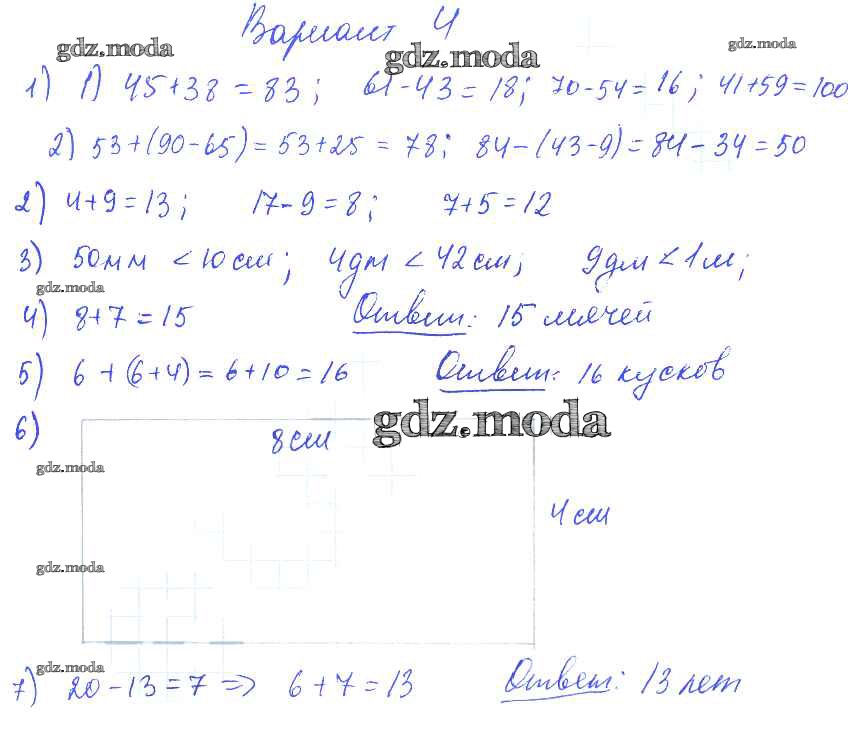 Вариант 4
gdz.moda gdz.moda gdz.moda
1) 1) 45+38=83; 61-43=18; 70-54=16; 41+59=100
2) 53+(90-65)=53+25=78; 84-(43-9)=84-34=50
2) 4+9=13; 17-9=8; 7+5=12
3) 50мм < 10см; 4дм < 42см; 9дм < 1м;
gdz.moda
4) 8+7=15 Ответ: 15 мячей
5) 6+(6+4)=6+10=16 Ответ: 16 кусков
gdz.moda
6) 8см
gdz.moda
4см
gdz.moda
gdz.moda
7) 20-13=7 => 6+7=13 Ответ: 13 лет